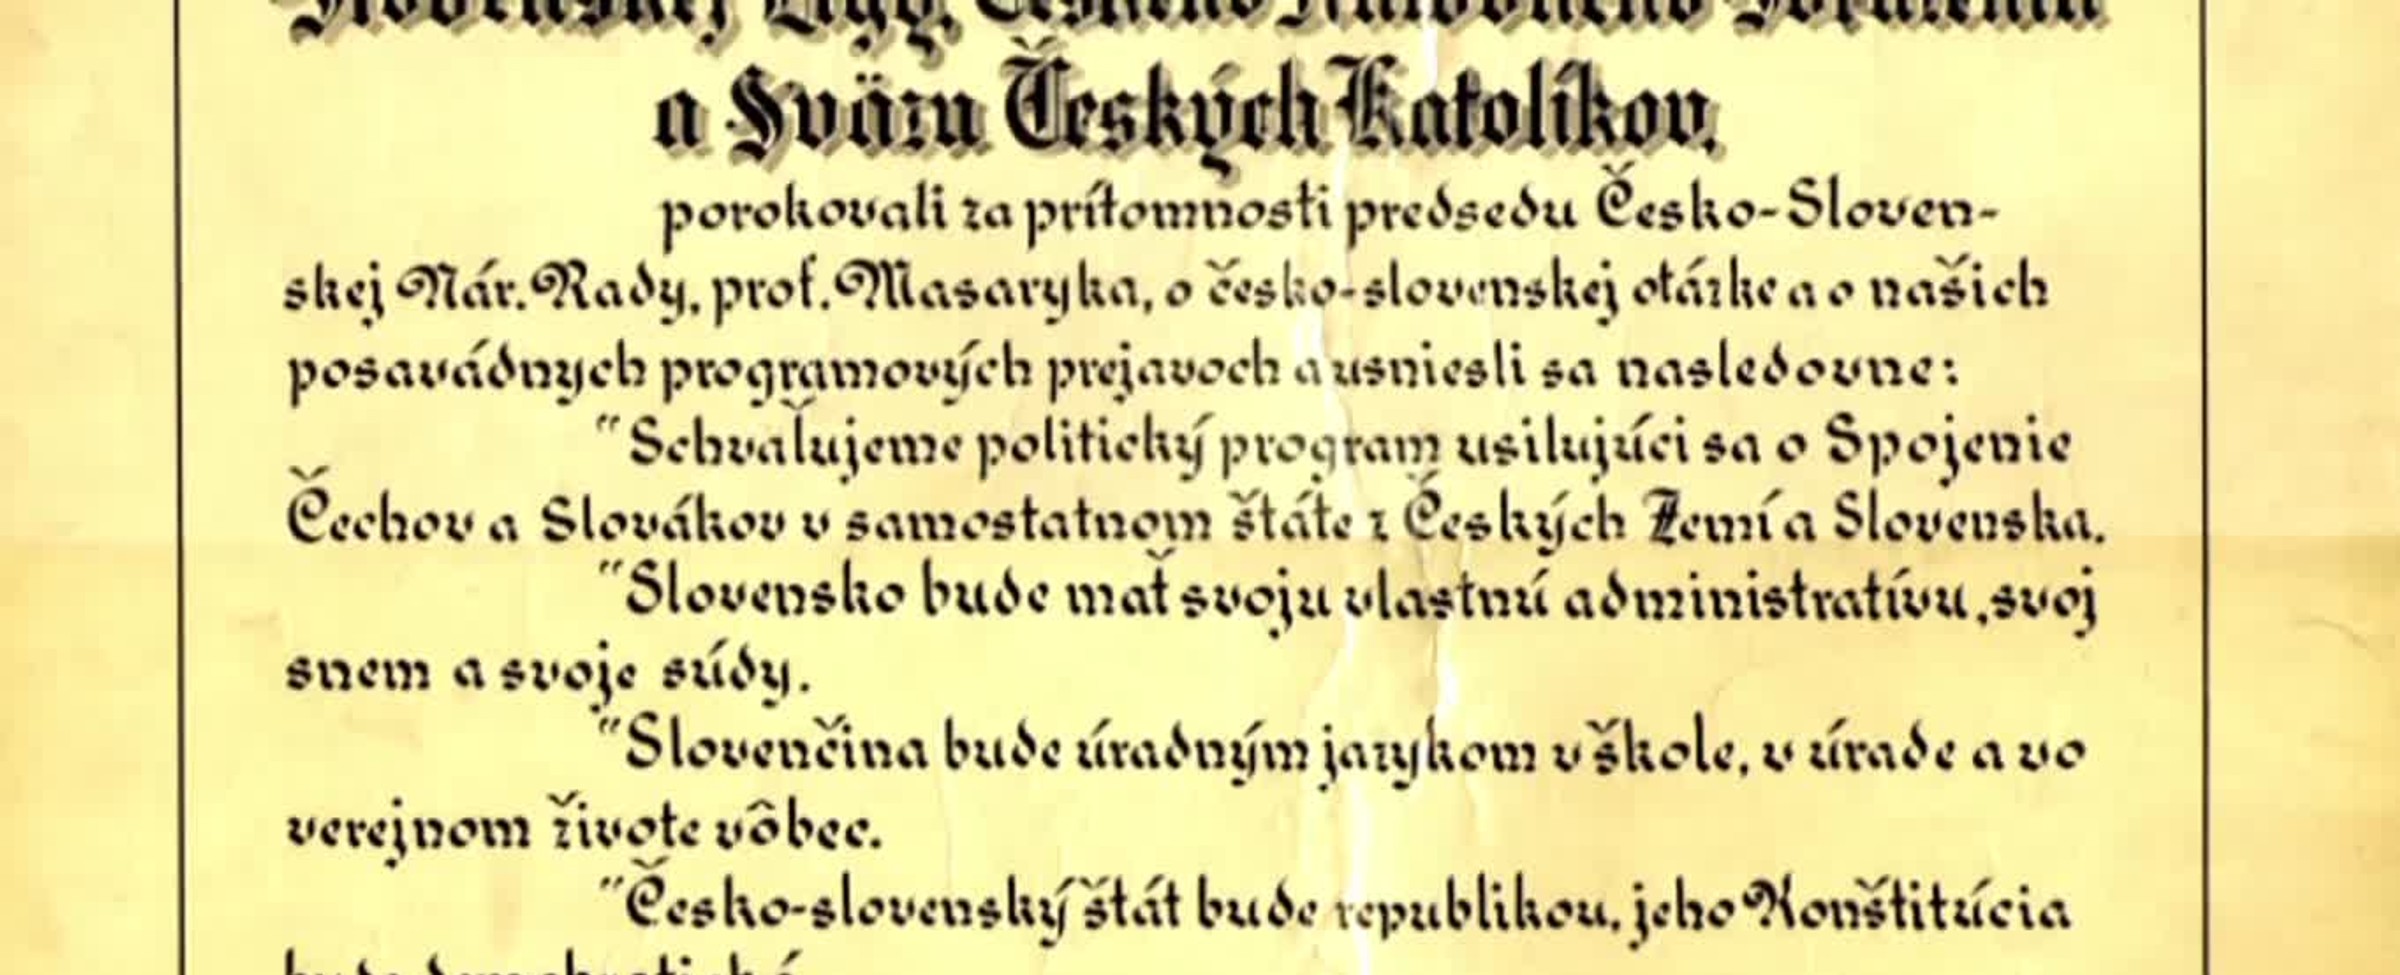 Slovenskej Ligy, Českého Národného Sdruženia
a Sväzu Českých Katolíkov,
porokovali za prítomnosti predsedu Česko-Sloven-
skej Nár. Rady, prof. Masaryka, o česko-slovenskej otázke a o našich
posavádnych programových prejavoch a usniesli sa nasledovne:
"Schvaľujeme politický program usilujúci sa o Spojenie
Čechov a Slovákov v samostatnom štáte z Českých Zemí a Slovenska.
"Slovensko bude mať svoju vlastnú administratívu, svoj
snem a svoje súdy.
"Slovenčina bude úradným jazykom v škole, v úrade a vo
verejnom živote vôbec.
"Česko-slovenský štát bude republikou, jeho Konštitúcia
bude demokratická.